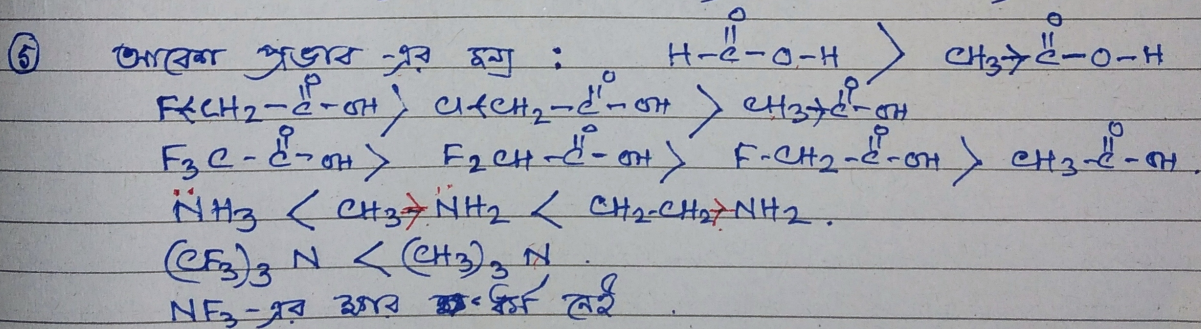 ⑤ আবেশ প্রভাব -এর জন্য : H-C(=O)-O-H > CH3→C(=O)-O-H
F←CH2-C(=O)-OH > Cl←CH2-C(=O)-OH > CH3→C(=O)-OH
F3C-C(=O)-OH > F2CH-C(=O)-OH > F-CH2-C(=O)-OH > CH3-C(=O)-OH.
N̈H3 < CH3→N̈H2 < CH2-CH2→NH2.
(CF3)3 N < (CH3)3 N.
NF3-এর ক্ষার ধর্ম নেই.